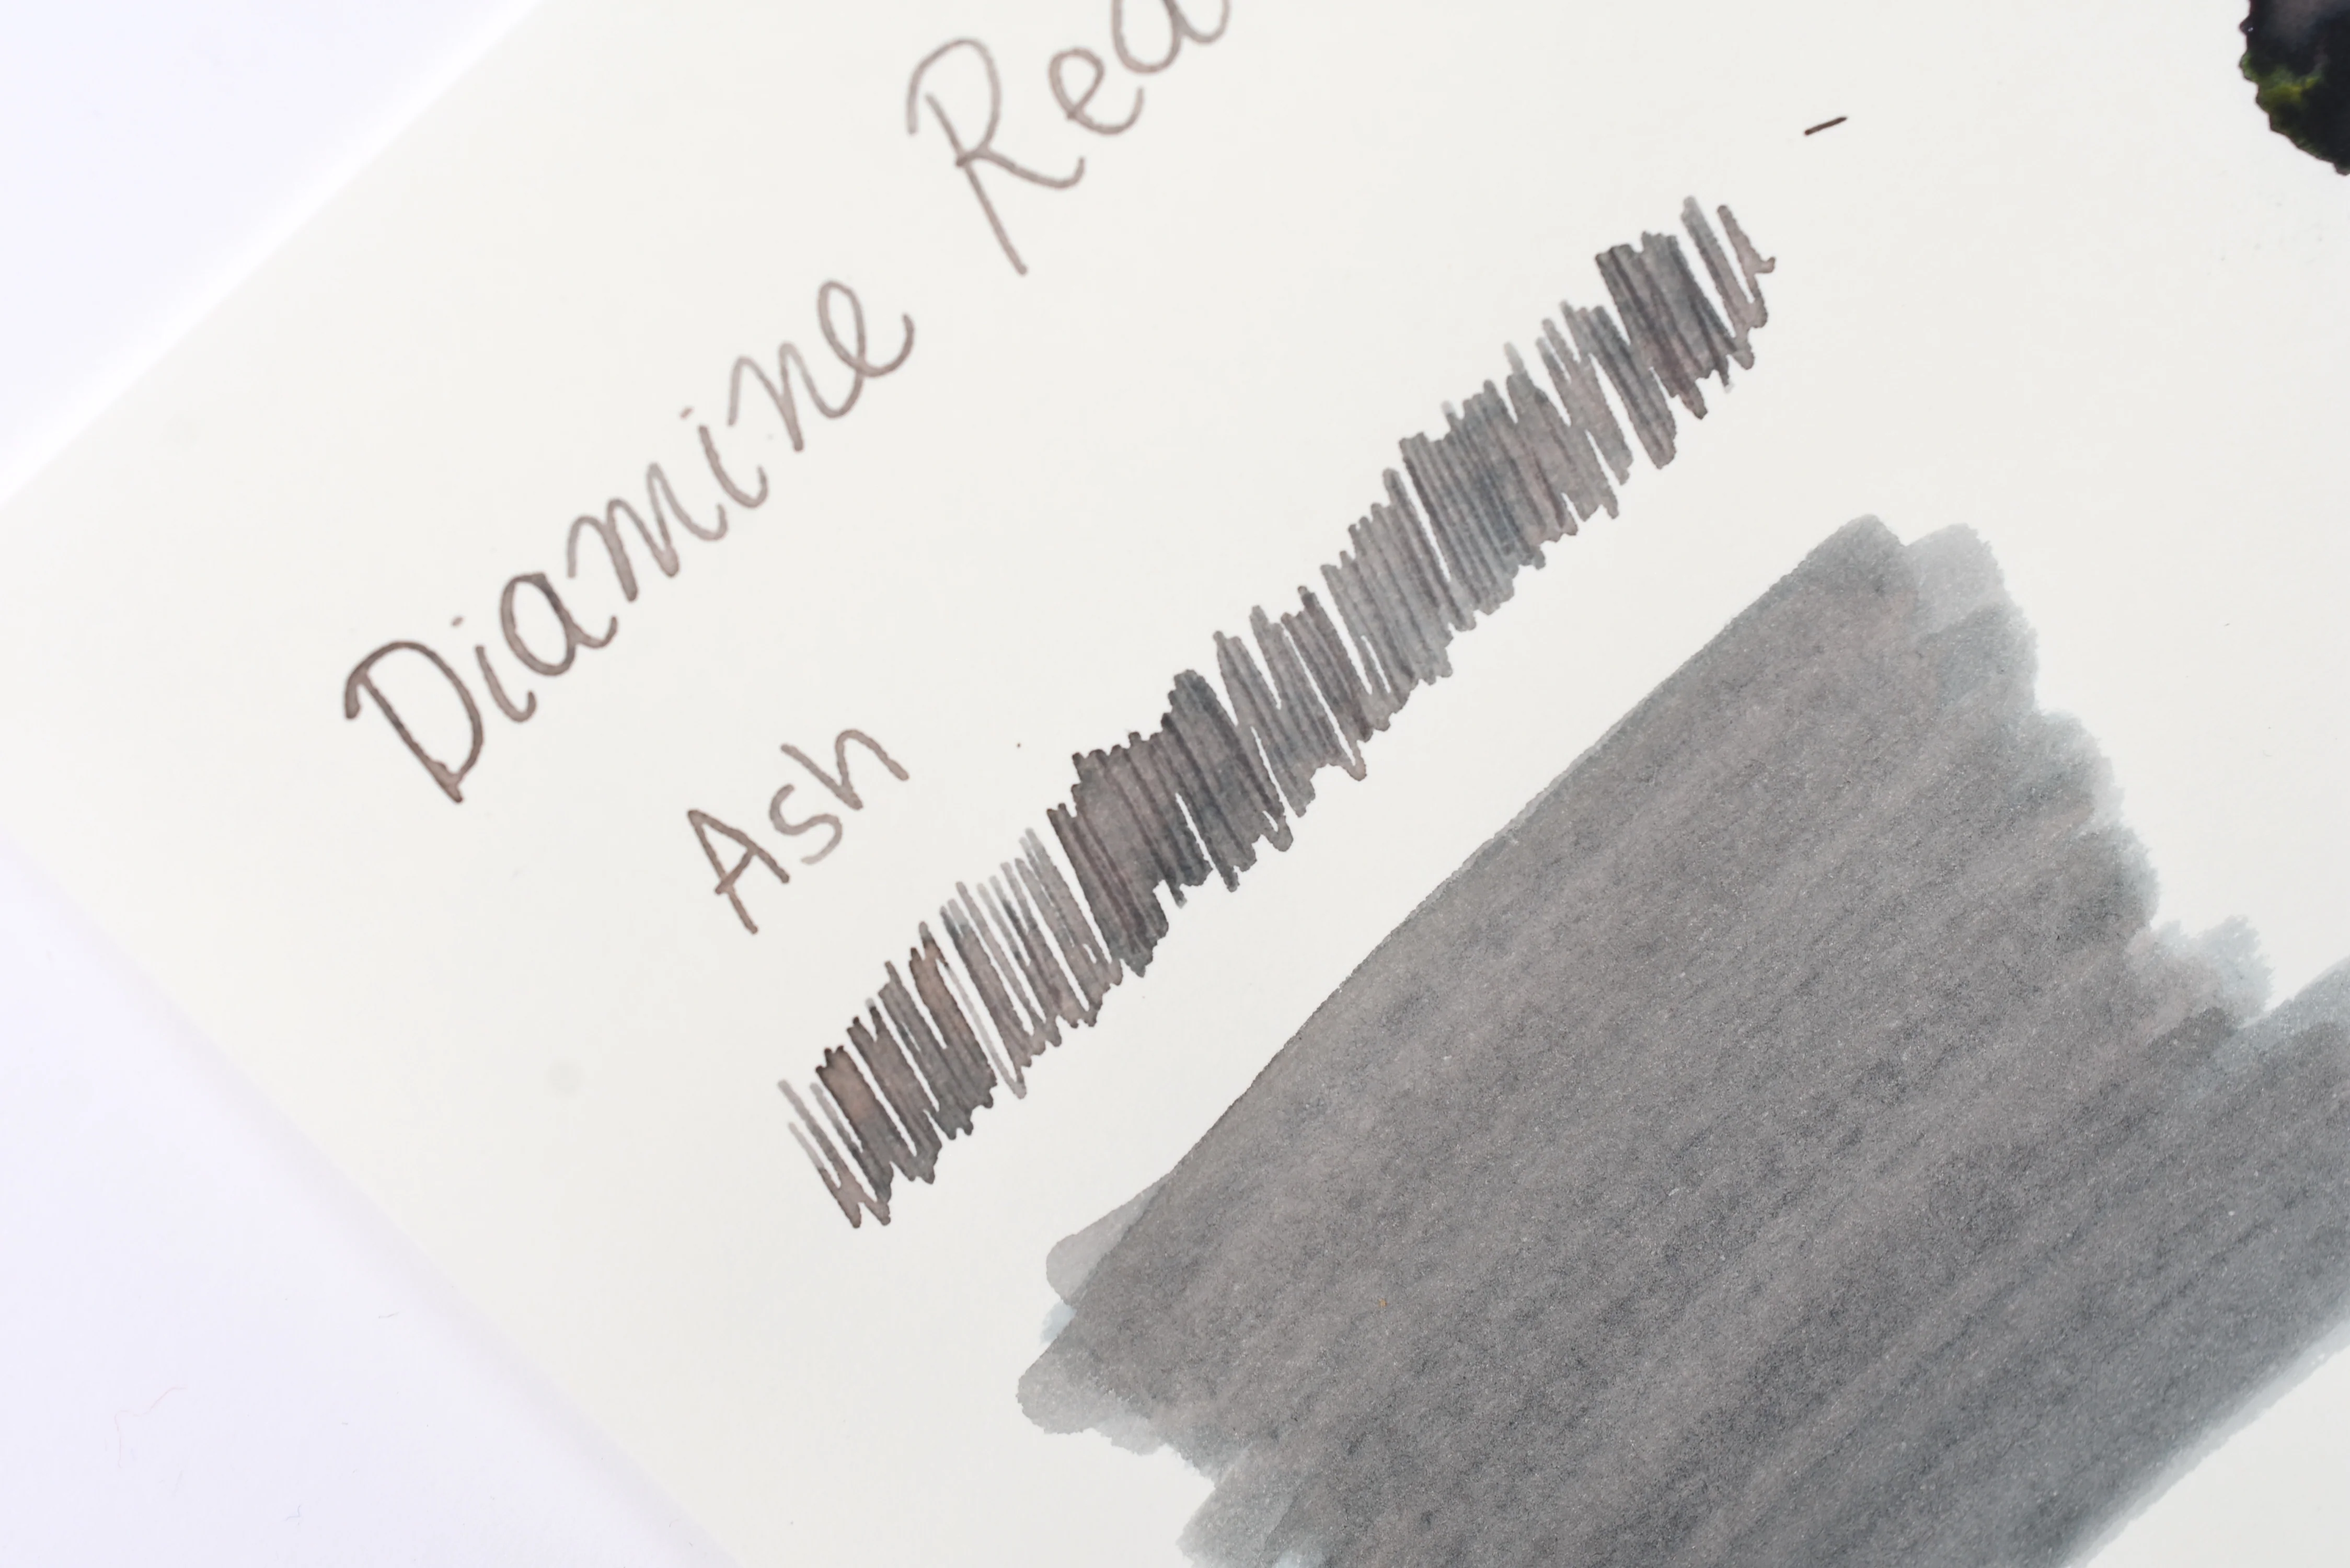 Diamine Rea
Ash